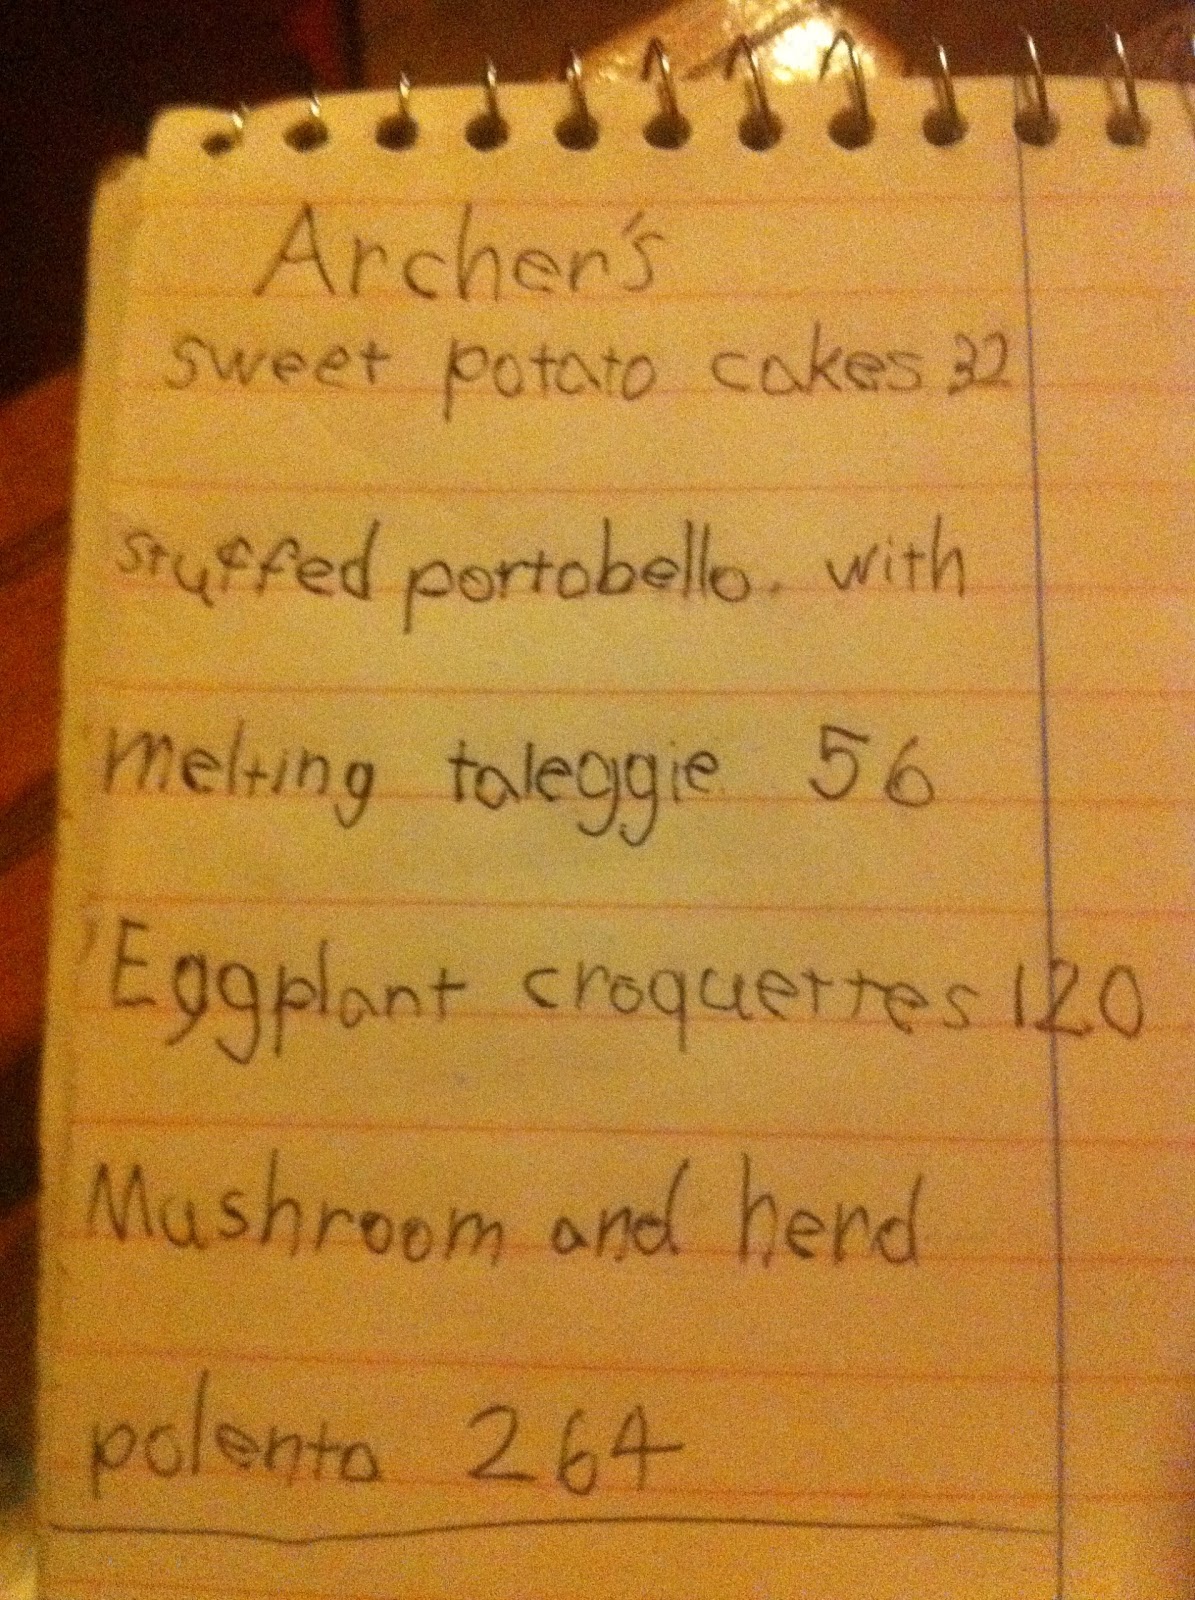 Archer's
sweet potato cakes 32
stuffed portobello. with
melting taleggie 56
Eggplant croquettes 120
Mushroom and herd
polenta 264